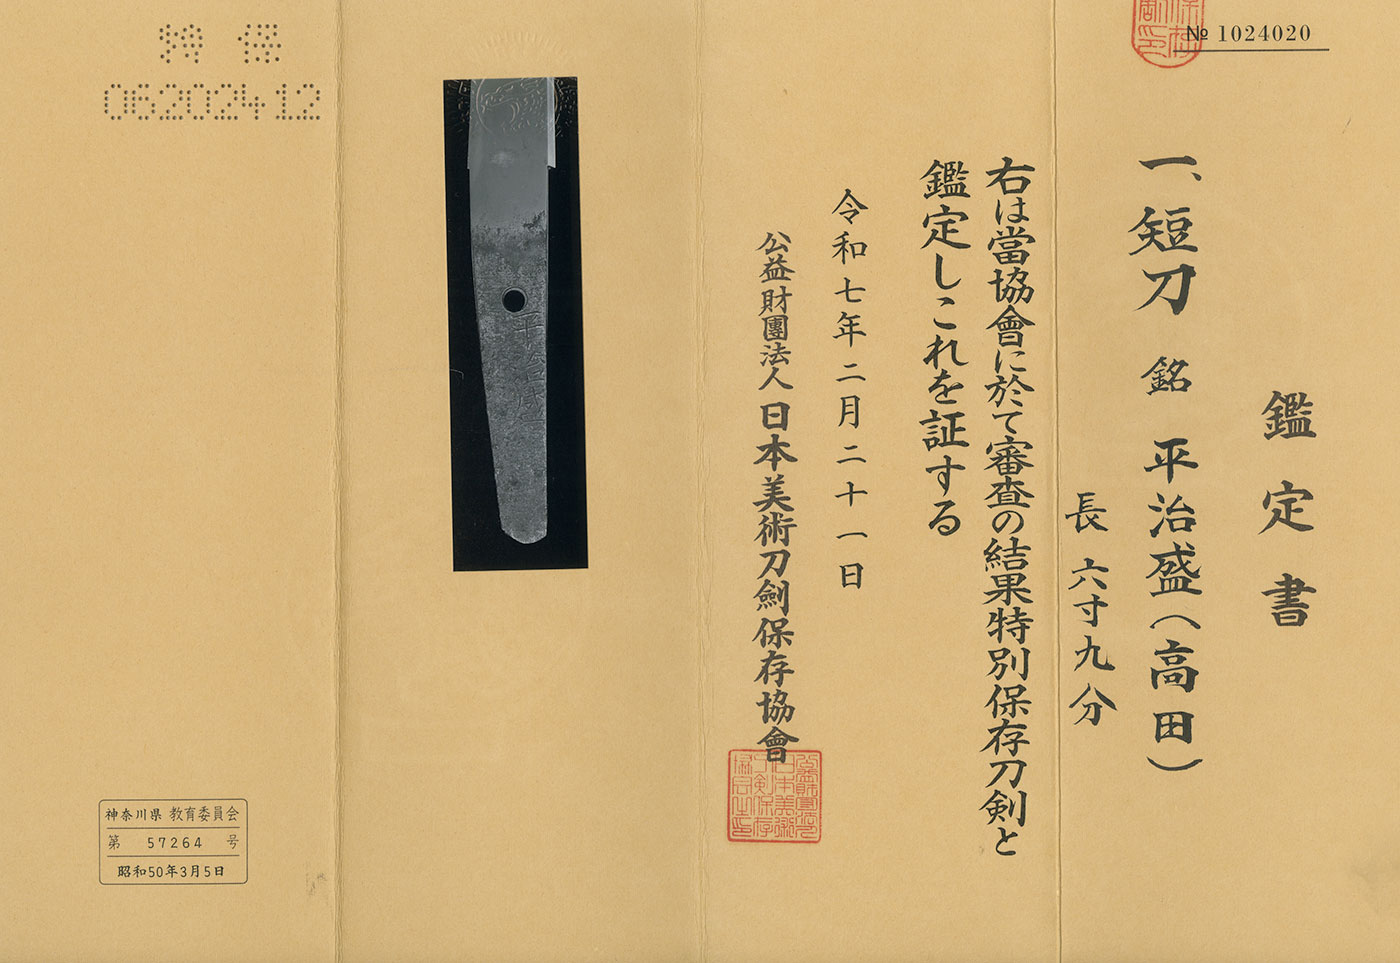 № 1024020
鑑定書
一、短刀 銘 平治盛(高田)
長 六寸九分
右は當協會に於て審査の結果特別保存刀剣と
鑑定しこれを証する
令和七年二月二十一日
公益財團法人 日本美術刀劍保存協會
平治盛
特保
06202412
神奈川県 教育委員会
第 57264 号
昭和50年3月5日